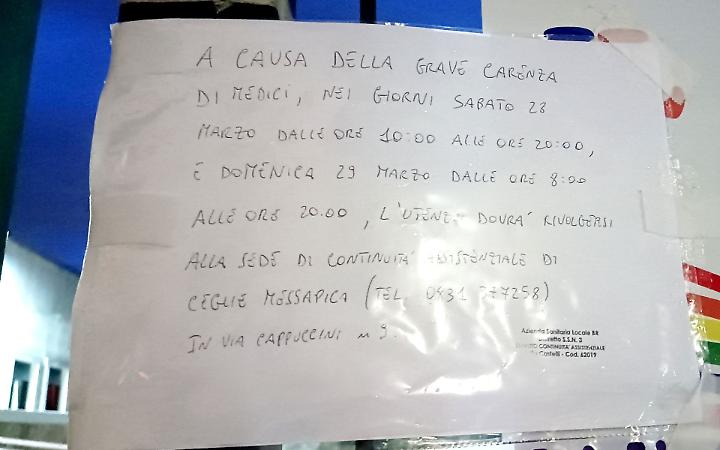 A CAUSA DELLA GRAVE CARENZA
DI MEDICI, NEI GIORNI SABATO 28
MARZO DALLE ORE 10:00 ALLE ORE 20:00,
E DOMENICA 29 MARZO DALLE ORE 8:00
ALLE ORE 20.00, L'UTENZA DOVRA' RIVOLGERSI
ALLA SEDE DI CONTINUITA' ASSISTENZIALE DI
CEGLIE MESSAPICA (TEL. 0831 377258)
IN VIA CAPPUCCINI n 9.
Azienda Sanitaria Locale BR
Distretto S.S.N. 3
CONTINUITA' ASSISTENZIALE
Castelli - Cod. 62019